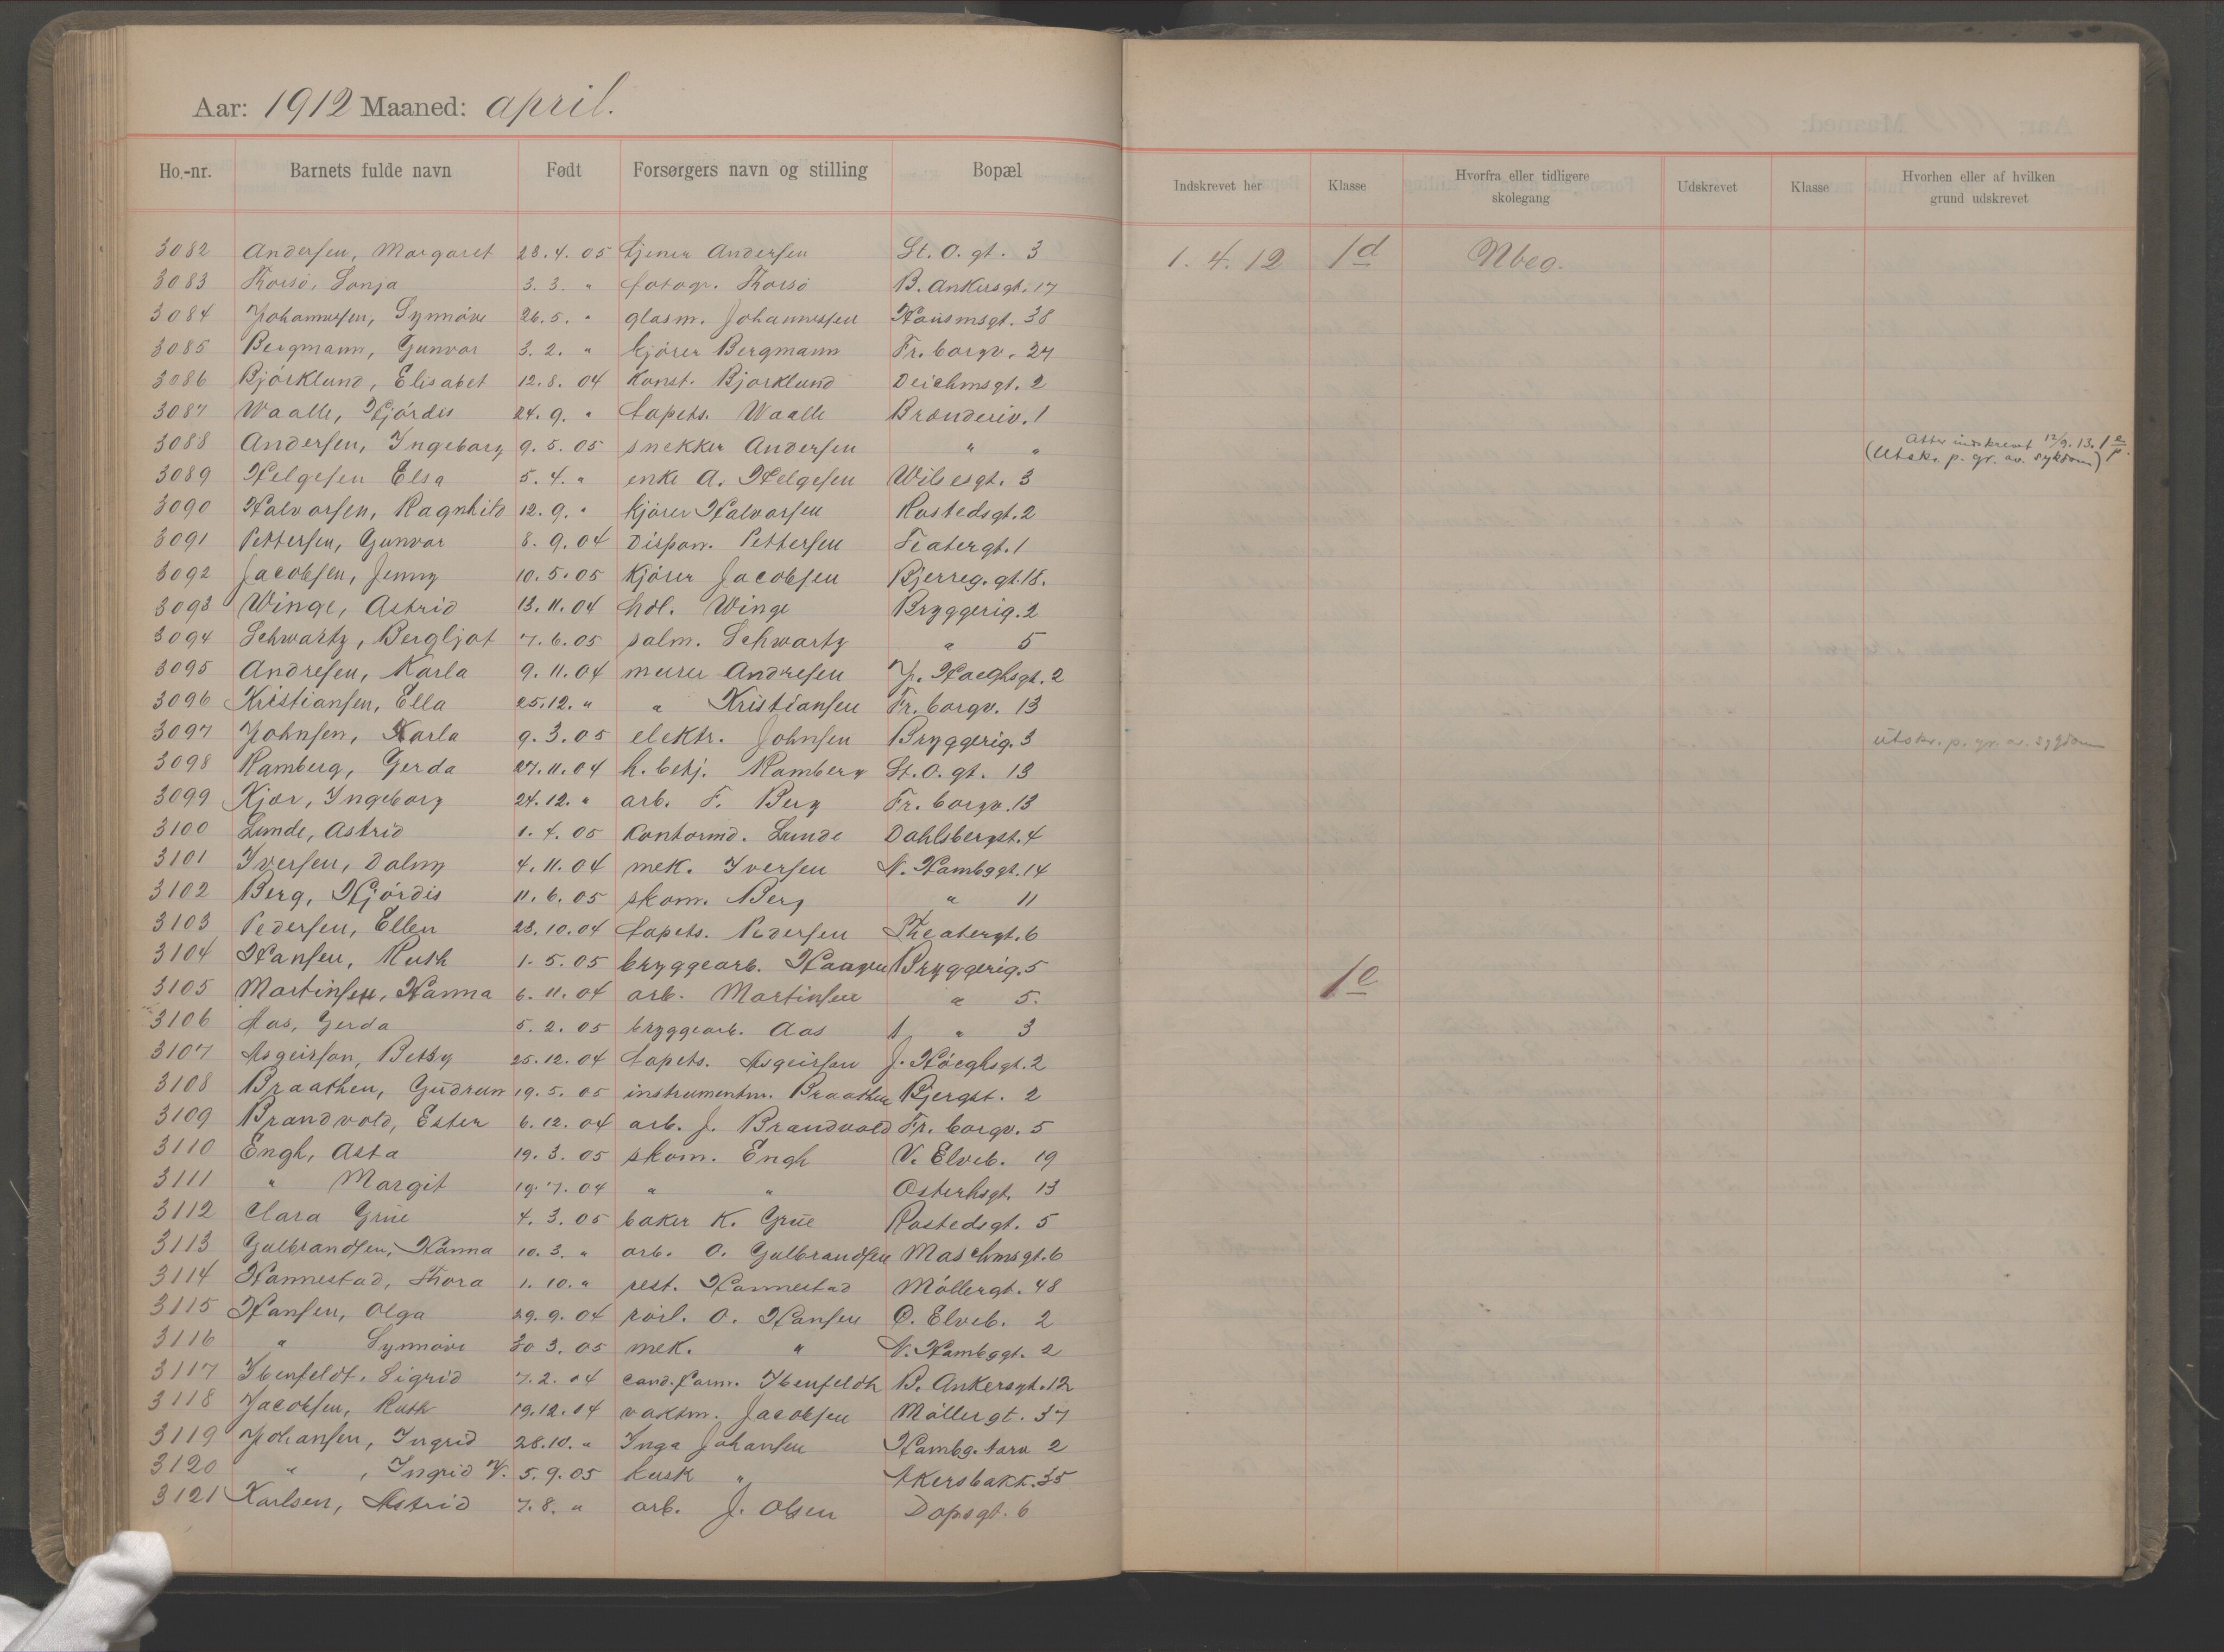 Aar: 1912 Maaned: april.
Ho.-nr. Barnets fulde navn Født Forsørgers navn og stilling Bopæl Indskrevet her Klasse Hvorfra eller tidligere skolegang Udskrevet Klasse Hvorhen eller af hvilken grund udskrevet
3082 Andersen, Margaret 23.4.05 tjener Andersen St. O. gt. 3 1.4.12 1d Nbeg.
3083 Thorsö, Sonja 3.3. " fotogr. Thorsö B. Ankersgt. 17
3084 Johannesen, Synnöve 26.5. " glasm. Johannessen Hausmsgt. 38
3085 Bergmann, Gunvor 3.2. " kjörer Bergmann Fr. borgv. 24
3086 Björklund, Elisabet 12.8.04 Konst. Bjorklund Deichmsgt. 2
3087 Waalle, Hjördis 24.9. " tapets. Waalle Brænderiv. 1
3088 Andersen, Ingeborg 9.5.05 snekker Andersen " " Atter indskrevet 12/9.13. 1e/p.
(Utskr. p. gr. av. sykdom)
3089 Helgesen Elsa 5.4. " enke A. Helgesen Wilsesgt. 3
3090 Halvorsen, Ragnhild 12.9. " kjörer Halvorsen Rostedsgt. 2
3091 Pettersen, Gunvor 8.9.04 Dispon. Pettersen Teatergt. 1
3092 Jacobsen, Jenny 10.5.05 Kjörer Jacobsen Bjerreg. gt. 18.
3093 Winge, Astrid 13.11.04 hdl. Winge Bryggerig. 2
3094 Schwartz, Bergljot 7.6.05 salm. Schwartz " 5
3095 Andresen, Karla 9.11.04 murer Andresen J. Høeghsgt. 2
3096 Kristiansen, Ella 25.12. " " Kristiansen Fr. borgv. 13
3097 Johnsen, Karla 9.3.05 elektr. Johnsen Bryggerig. 3 utskr. p. gr. av. sygdom
3098 Ramberg, Gerda 27.11.04 h. betj. Ramberg St. O. gt. 13
3099 Kjær, Ingeborg 24.12. " arb. F. Berg Fr. borgv. 13
3100 Lunde, Astrid 1.4.05 Kontormd. Lunde Dahlsbergst. 4
3101 Iversen, Dalny 4.11.04 mek. Iversen N. Hambggt. 14
3102 Berg, Hjördis 11.6.05 skom. Berg " 11
3103 Pedersen, Ellen 23.10.04 tapets. Pedersen Theatergt. 6
3104 Hansen, Ruth 1.5.05 bryggearb. Hansen Bryggerig. 5 1e
3105 Martinsen, Hanna 6.11.04 arb. Martinsen " 5.
3106 Aas, Gerda 5.2.05 bryggearb. Aas " 3
3107 Asgeirson, Betsy 25.12.04 tapets. Asgeirson J. Höeghsgt. 2
3108 Braathen, Gudrun 19.5.05 instrumentm. Braathen Bjergst. 2
3109 Brandvold, Ester 6.12.04 arb. J. Brandvold Fr. borgv. 5
3110 Engh, Asta 19.3.05 skom. Engh V. Elveb. 19
3111 " Margit 19.7.04 " " Osterhsgt. 13
3112 Clara Grüe 4.3.05 baker K. Grüe Rostedsgt. 5
3113 Gulbrandsen, Hanna 10.3. " arb. O. Gulbrandsen Maschmsgt. 6
3114 Hannestad, Thora 1.10. " rest. Hannestad Möllergt. 48
3115 Hansen, Olga 29.9.04 rörl. O. Hansen Ö. Elveb. 2
3116 " Synnöve 30 3.05 mek. " N. Hambggt. 2
3117 Ibenfeldt, Sigrid 7.2.04 cand. farm. Ibenfeldt B. Ankersgt. 12
3118 Jacobsen, Ruth 19.12.04 vaktm. Jacobsen Möllergt. 37
3119 Johansen, Ingrid 28.10. " Inga Johansen Hambg. torv 2
3120 " , Ingrid V. 5.9.05 kusk " Akersbakk. 35
3121 Karlsen, Astrid 7.8. " arb. J. Olsen Dopsgt. 6